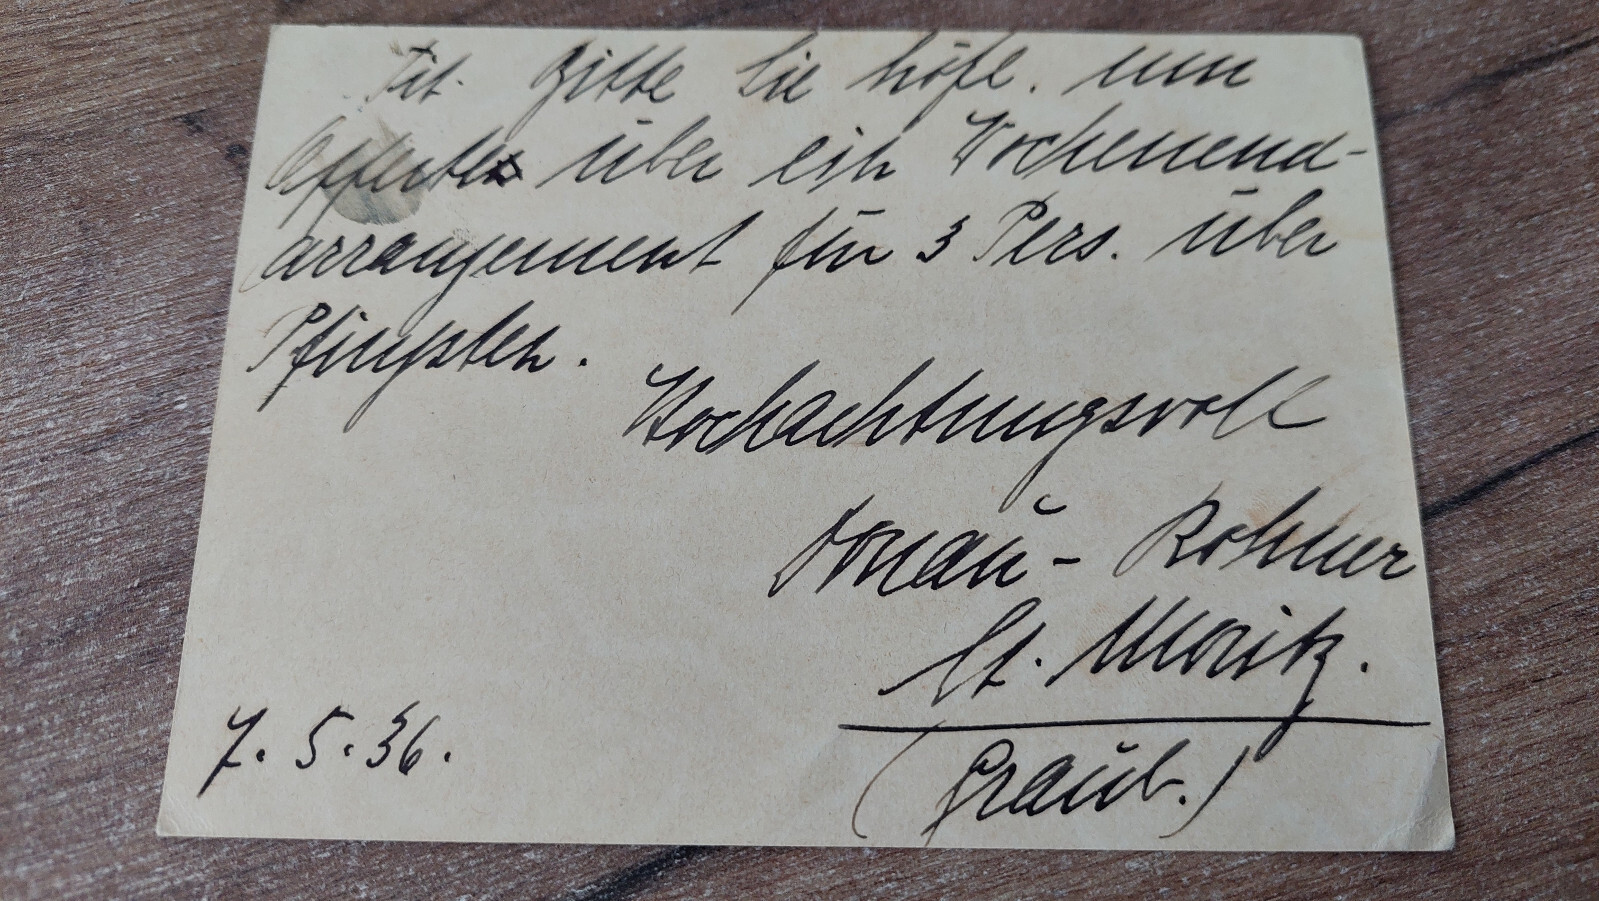 Tit. Bitte Sie höfl. um
Offerte über ein Wochenend-
arrangement für 3 Pers. über
Pfingsten.
Hochachtungsvoll
Donau - Rohner
St. Moritz.
(Graub.)
7. 5. 36.